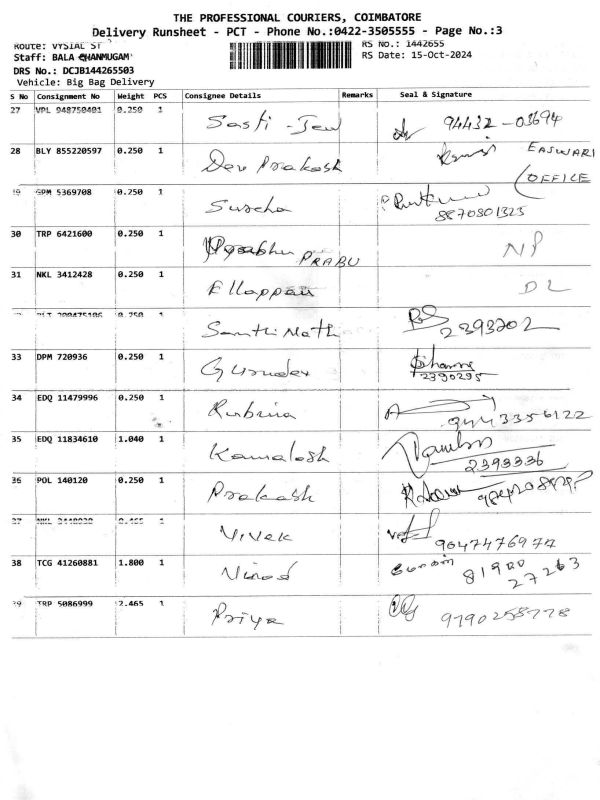 THE PROFESSIONAL COURIERS, COIMBATORE
Delivery Runsheet - PCT - Phone No.:0422-3505555 - Page No.:3
Route: VYSIAL ST RS No.: 1442655
Staff: BALA SHANMUGAM RS Date: 15-Oct-2024
DRS No.: DCJB144265503
Vehicle: Big Bag Delivery
S No Consignment No Weight PCS Consignee Details Remarks Seal & Signature
27 VPL 948750401 0.250 1 Sasti - 94432-03694
28 BLY 855220597 0.250 1 Dev Prakash EASWARI
OFFICE
29 GPM 5369708 0.250 1 Suresha
8870301325
30 TRP 6421600 0.250 1 PRABU NP
31 NKL 3412428 0.250 1 Ellappan DL
0.250 1 Santhi Nath 2393202
33 DPM 720936 0.250 1 Gurudev
2390295
34 EDQ 11479996 0.250 1 Rubina 9443356122
35 EDQ 11834610 1.040 1 Kamalesh
2393336
36 POL 140120 0.250 1 Prakash
37 NKL 0.465 1 Vivek
9047476977
38 TCG 41260881 1.800 1 Vinod 81900
27263
39 TRP 5086999 2.465 1 Priya 9790258778